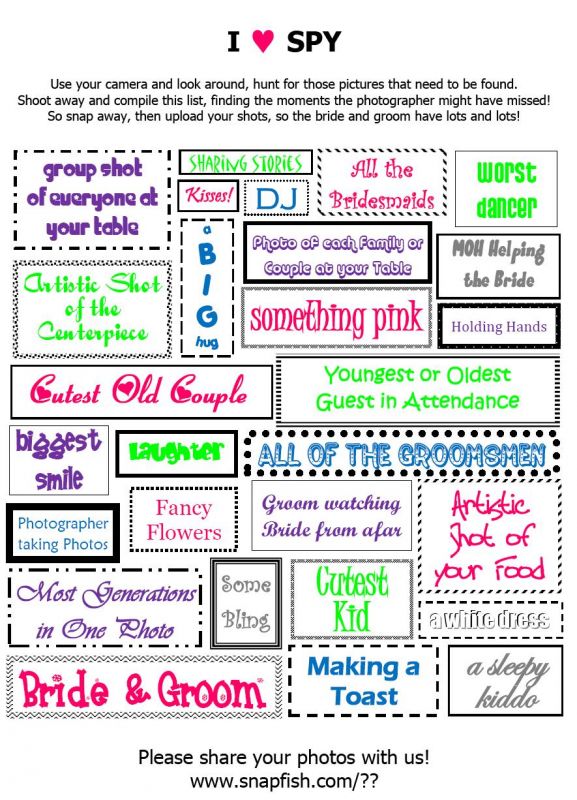 I ♥ SPY
Use your camera and look around, hunt for those pictures that need to be found.
Shoot away and compile this list, finding the moments the photographer might have missed!
So snap away, then upload your shots, so the bride and groom have lots and lots!
group shot
of everyone at
your table
SHARING STORIES
Kisses!
DJ
All the
Bridesmaids
worst
dancer
Artistic Shot
of the
Centerpiece
a
B
I
G
hug
Photo of each Family or
Couple at your Table
MOH Helping
the Bride
something pink
Holding Hands
Cutest Old Couple
Youngest or Oldest
Guest in Attendance
biggest
smile
Laughter
ALL OF THE GROOMSMEN
Photographer
taking Photos
Fancy
Flowers
Groom watching
Bride from afar
Artistic
Shot of
your Food
Most Generations
in One Photo
Some
Bling
Cutest
Kid
a white dress
Bride & Groom
Making a
Toast
a sleepy
kiddo
Please share your photos with us!
www.snapfish.com/??